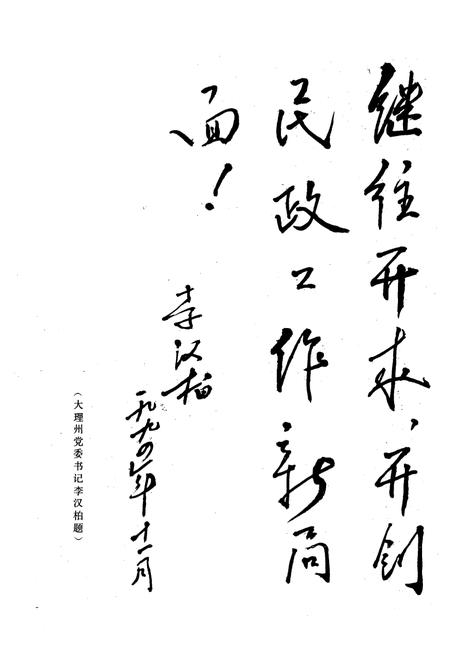 继往开来，开创
民政工作新局
面！
李汉柏
一九九四年十一月
（大理州党委书记李汉柏题）